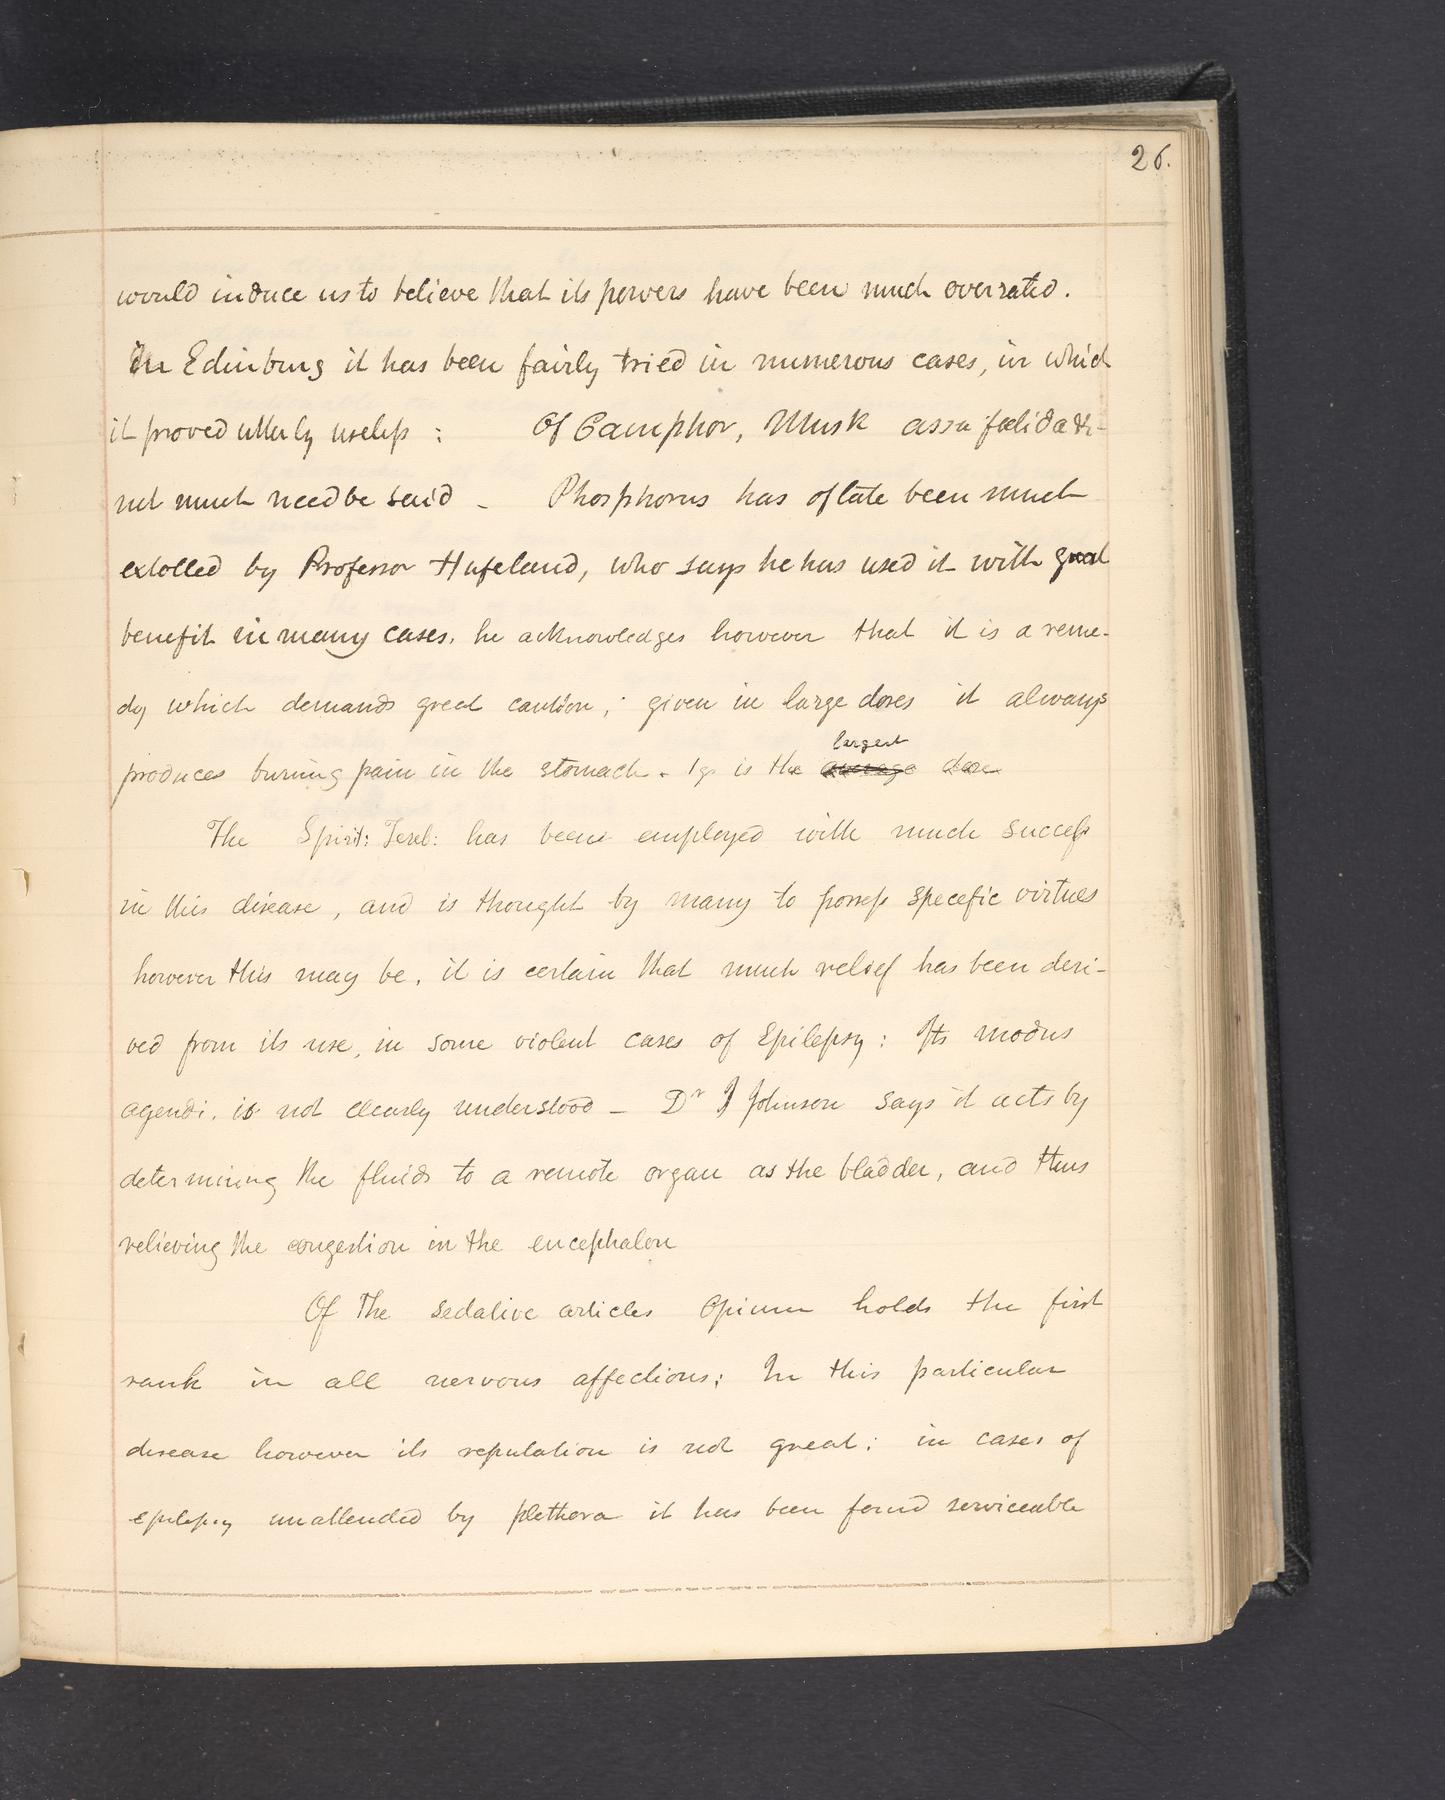 26.
would induce us to believe that its powers have been much overrated.
In Edinburg it has been fairly tried in numerous cases, in which
it proved utterly useless : Of Camphor, Musk assafœlida &c-
not much need be said - Phosphorus has of late been much
extolled by Professor Hufeland, who says he has used it with great
benefit in many cases. he acknowledges however that it is a reme-
dy which demands great caution; given in large doses it always
largest
produces burning pain in the stomach. 1 gr is the average dose
The Spirit: Tereb: has been employed with much success
in this disease, and is thought by many to possess specefic virtues
however this may be, it is certain that much relief has been deri-
ved from its use, in some violent cases of Epilepsy: Its modus
agendi. is not clearly understood - Dr J Johnson says it acts by
determining the fluids to a remote organ as the bladder, and thus
relieving the congestion in the encephalon
Of the sedative articles Opium holds the first
rank in all nervous affections; In this particular
disease however its reputation is not great; in cases of
epilepsy unattended by plethora it has been found serviceable